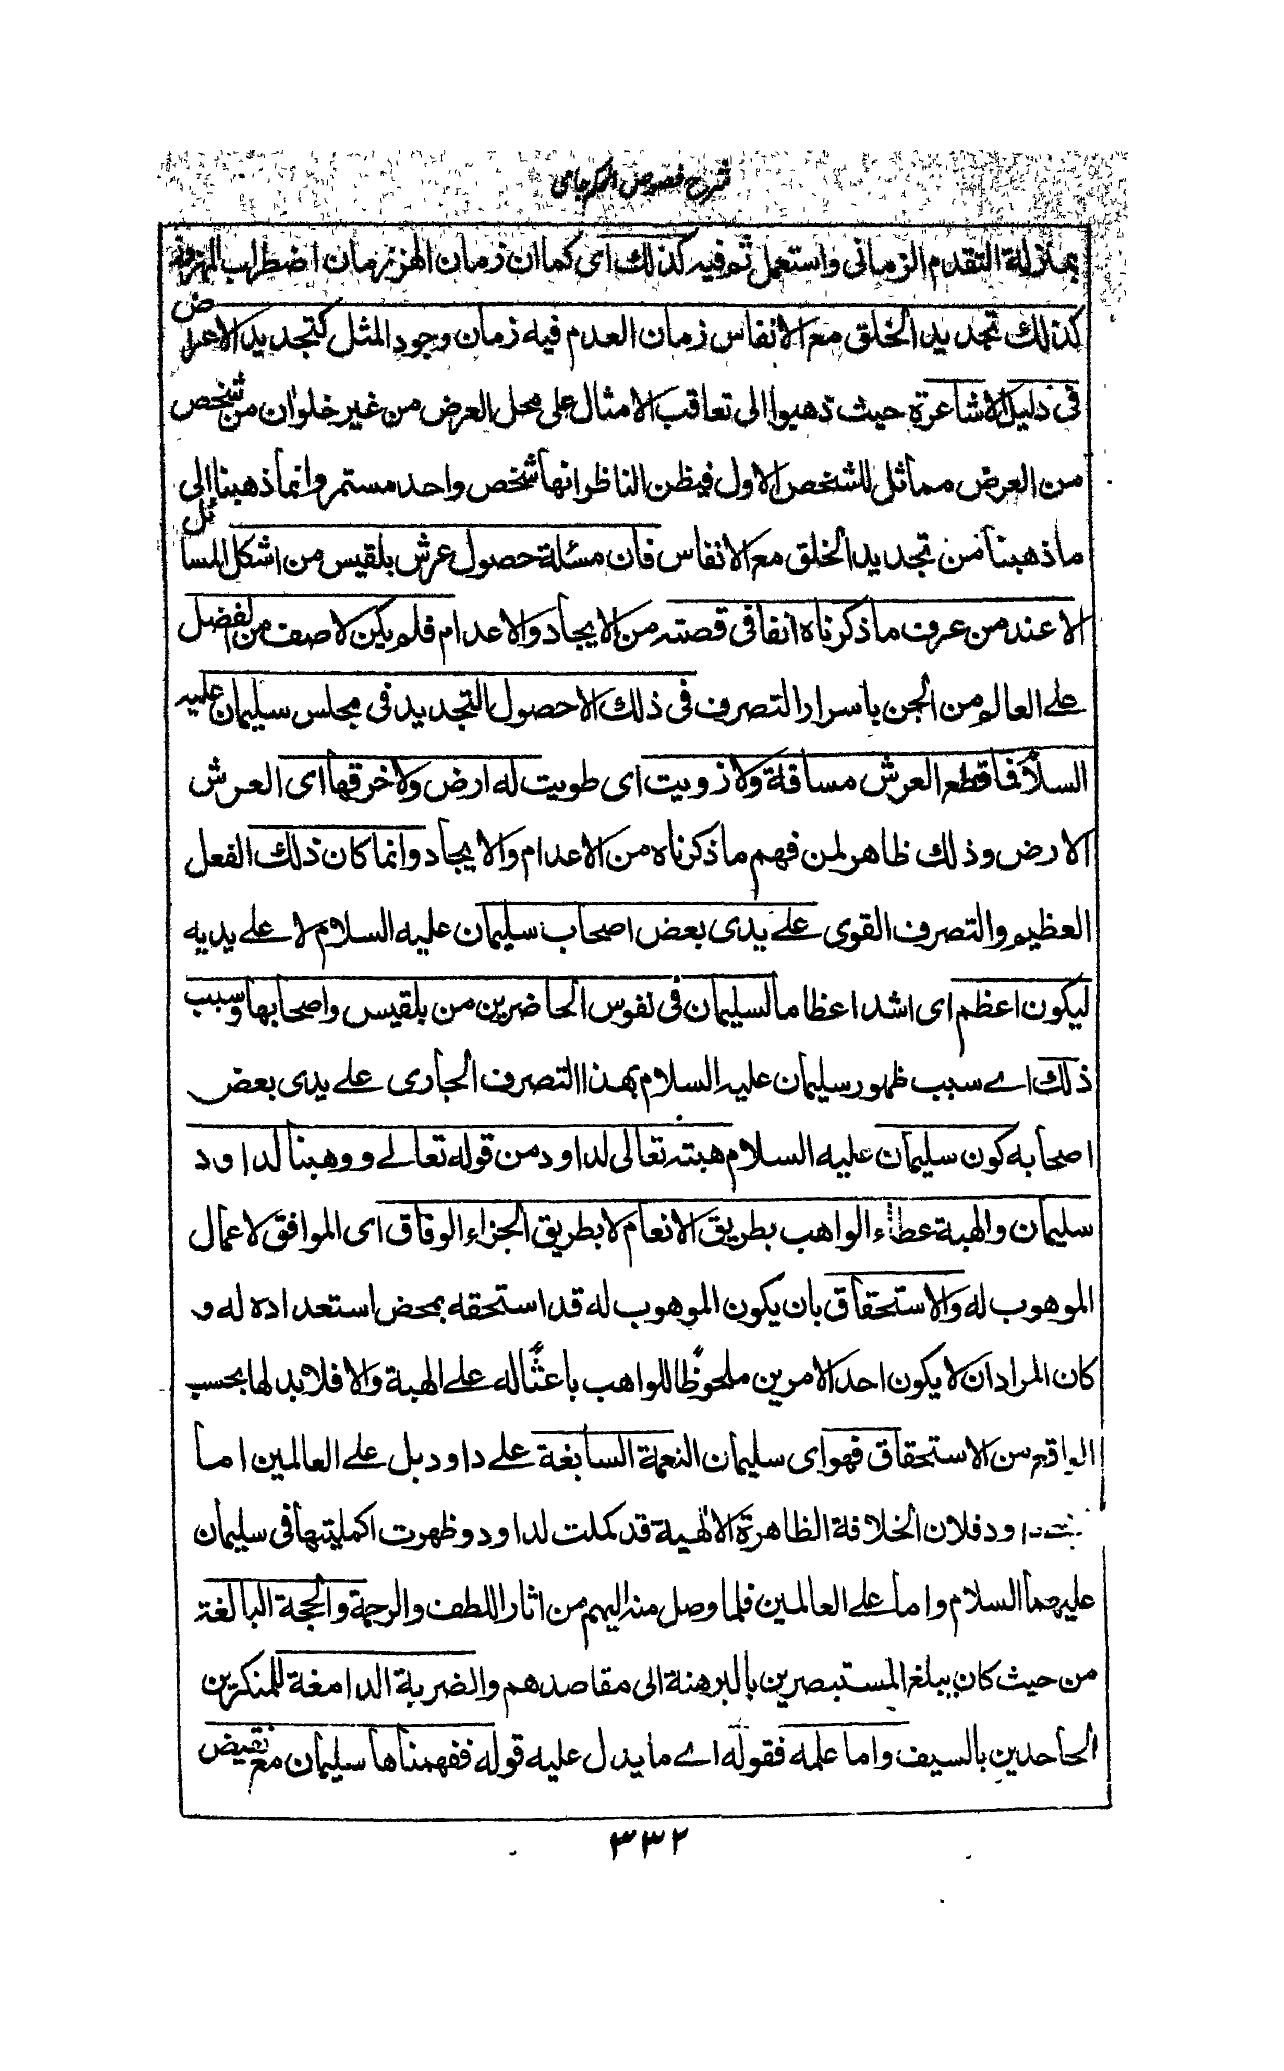 شرح فصوص الحكم جامى
بمنزلة التقدم الزمانى واستعمل ثم فيه كذلك اى كما ان زمان الهز زمان اضطراب المهزوز
كذلك تجديد الخلق مع الانفاس زمان العدم فيه زمان وجود المثل كتجديد الاعراض
فى دليل الاشاعرة حيث ذهبوا الى تعاقب الامثال على محل العرض من غير خلو ان من شخص
من العرض مماثل للشخص الاول فيظن الناظر انها شخص واحد مستمر وانما ذهبنا الى
ما ذهبنا من تجديد الخلق مع الانفاس فان مسئلة حصول عرش بلقيس من اشكل المسائل
الا عند من عرف ما ذكرناه انفا فى قصته من الايجاد والاعدام فلم يكن لاصف من الفضل
على العالم من الجن باسرار التصرف فى ذلك الا حصول التجديد فى مجلس سليمان عليه
السلام فما قطع العرش مسافة ولا زويت اى طويت له ارض ولا خرقها اى العرش
الارض وذلك ظاهر لمن فهم ما ذكرناه من الاعدام والايجاد وانما كان ذلك الفعل
العظيم والتصرف القوى على يدى بعض اصحاب سليمان عليه السلام لا على يديه
ليكون اعظم اى اشد اعظاما لسليمان فى نفوس الحاضرين من بلقيس واصحابها وسبب
ذلك اے سبب ظهور سليمان عليه السلام بهذا التصرف الجارى على يدى بعض
اصحابه كون سليمان عليه السلام هبته تعالى لداود من قوله تعالے ووهبنا لداود
سليمان والهبة عطاء الواهب بطريق الانعام لا بطريق الجزاء الوفاق اى الموافق لاعمال
الموهوب له والاستحقاق بان يكون الموهوب له قد استحقه بمحض استعداده له و
كان المراد ان لا يكون احد الامرين ملحوظًا للواهب باعثًا له على الهبة والا فلا بد لها بحسب
الواقع من الاستحقاق فهو اى سليمان النعمة السابغة على داود بل على العالمين اما
داود فلان الخلافة الظاهرة الالهية قد كملت لداود وظهرت اكمليتها فى سليمان
عليهما السلام واما على العالمين فلما وصل منه اليهم من اثار اللطف والرحمة والحجة البالغة
من حيث كان يبلغ المستبصرين بالبرهنة الى مقاصدهم والضربة الدامغة للمنكرين
الجاحدين بالسيف واما علمه فقوله اے ما يدل عليه قوله ففهمناها سليمان مع نقيض
٣٣٢